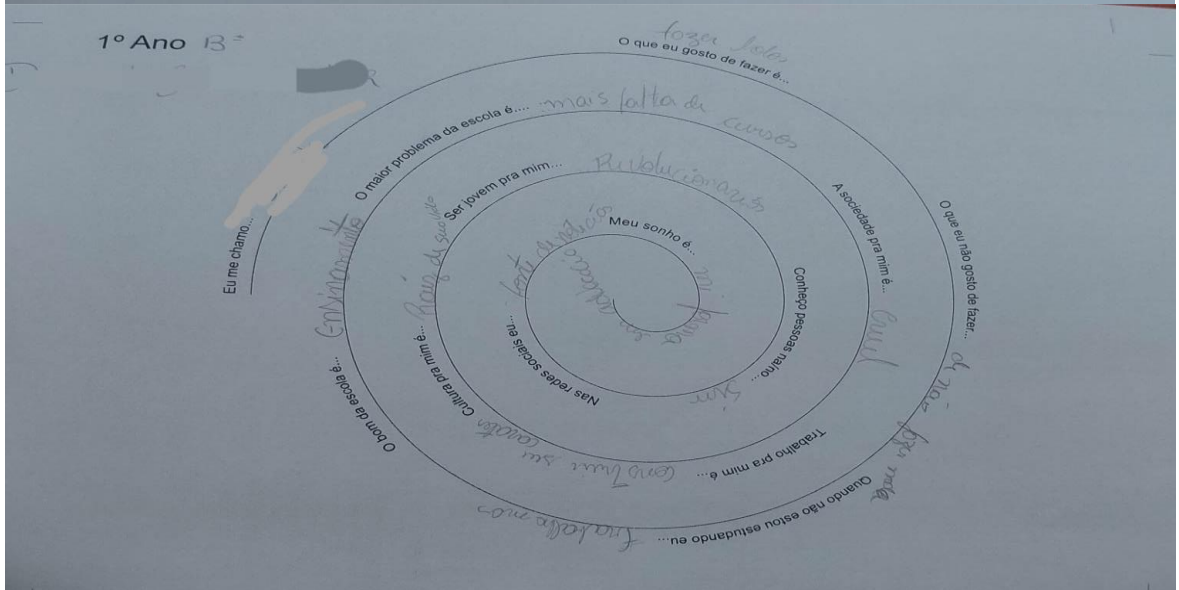 1º Ano B
Eu me chamo...
O que eu gosto de fazer é... fazer bolos
O que eu não gosto de fazer... de não fazer nada
Quando não estou estudando eu... trabalhamos
O bom da escola é... Ensinamento
O maior problema da escola é.... mais falta de cursos
A sociedade pra mim é... Cruel
Trabalho pra mim é... construir seu carater
Cultura pra mim é... Raiz de sua vida
Ser jovem pra mim... Revolucionarios
Conheço pessoas na/no... sim
Nas redes sociais eu... fonte de noticias
Meu sonho é... ir para